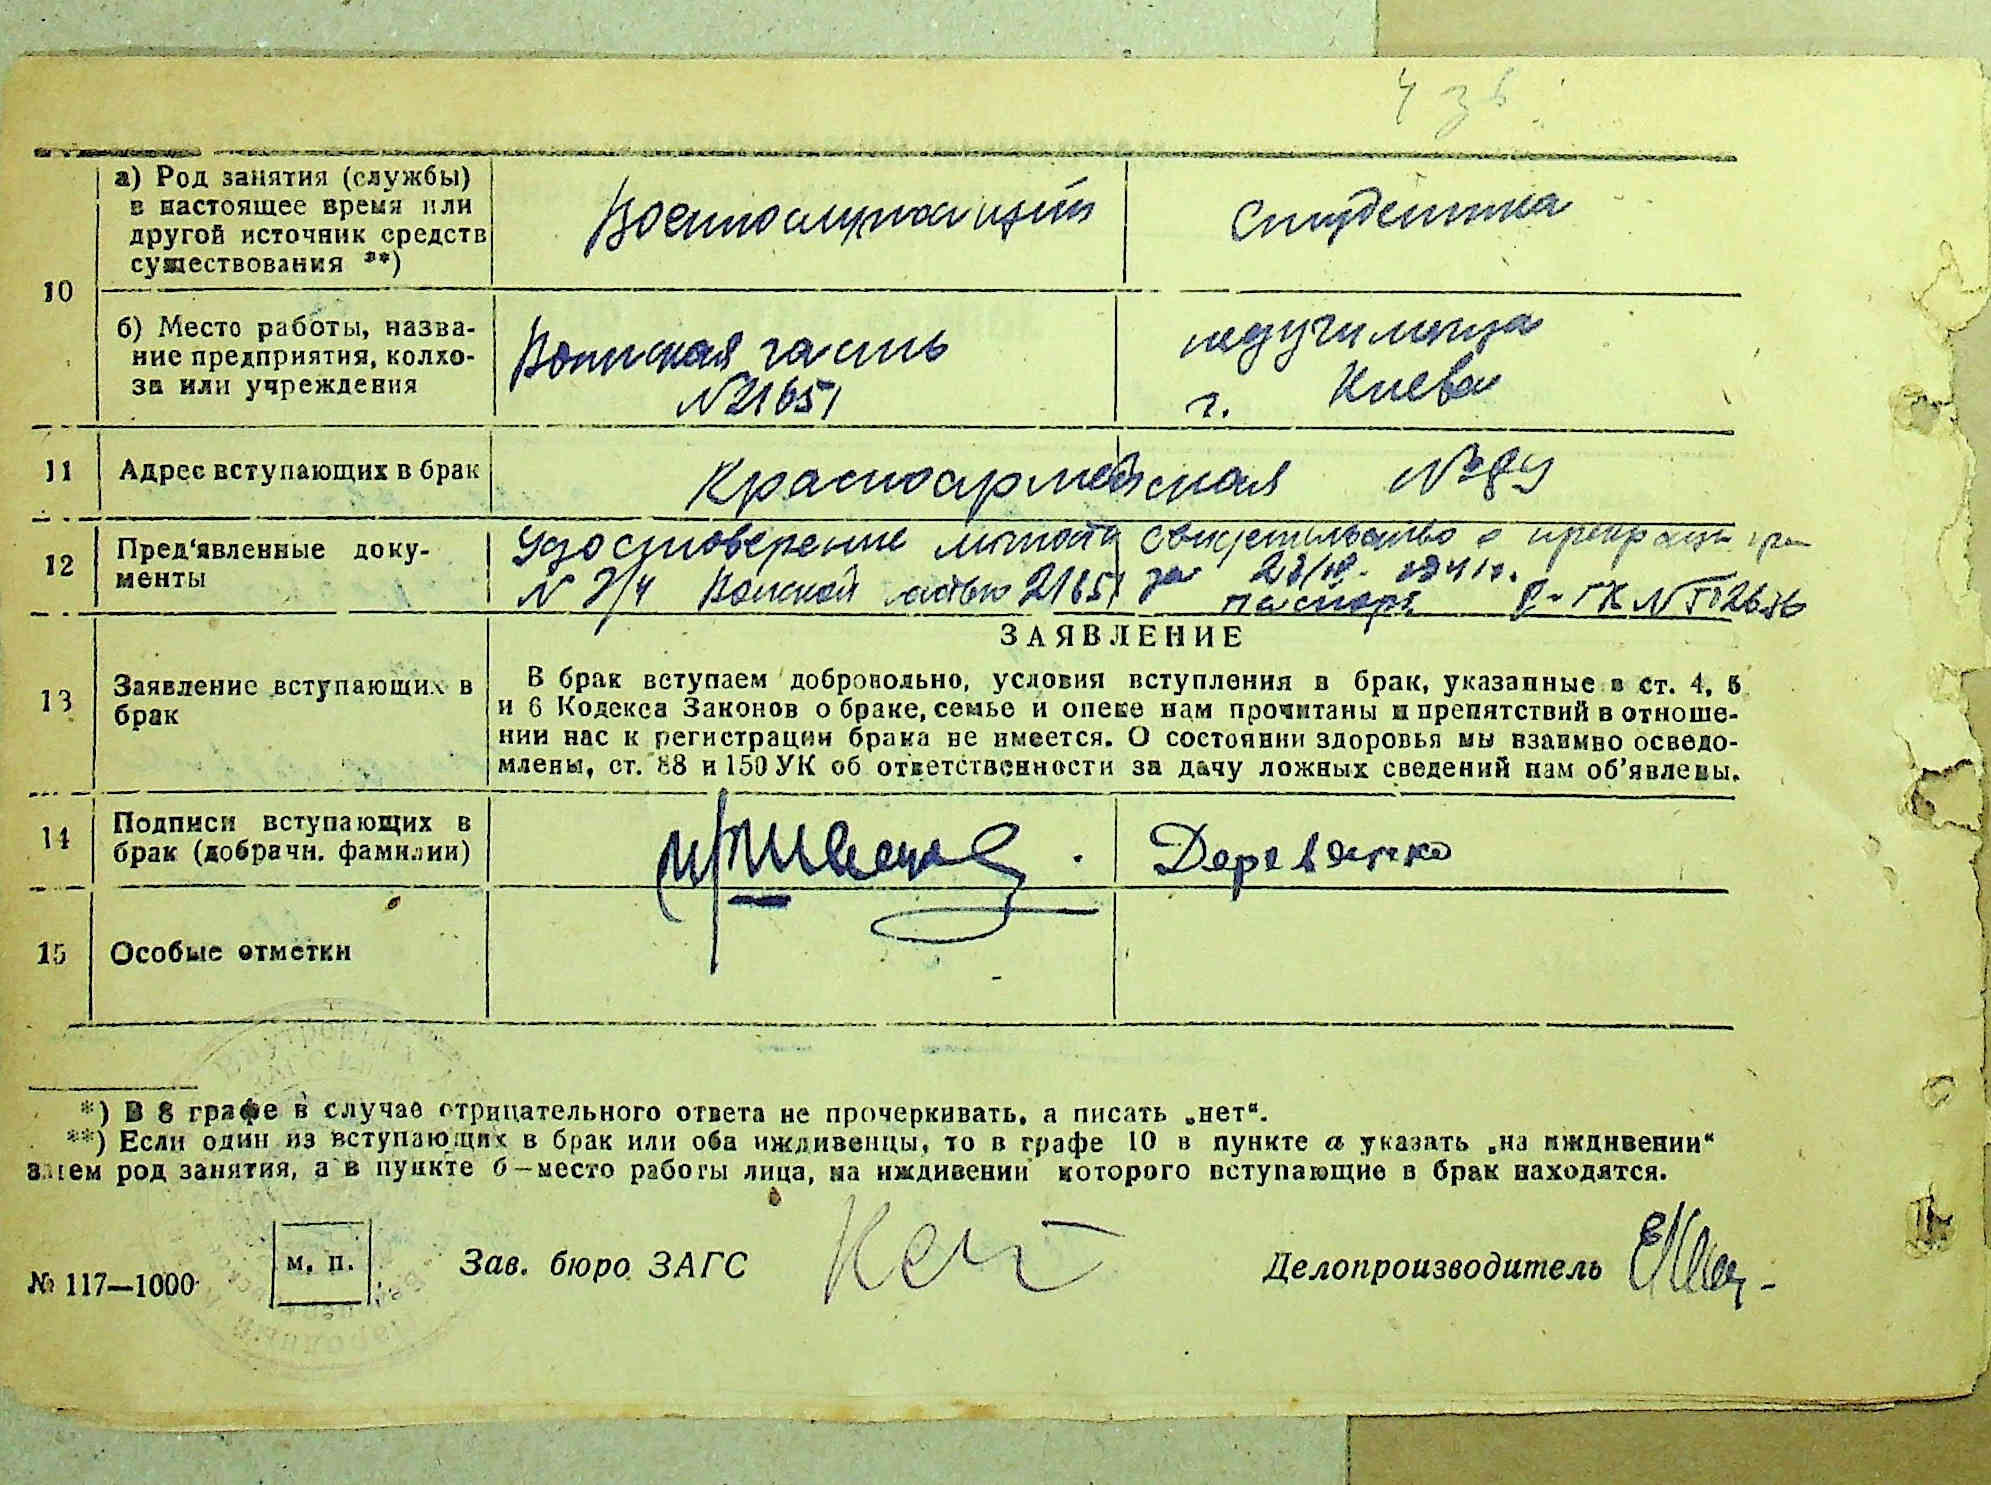 10
а) Род занятия (службы)
в настоящее время или
другой источник средств
существования **)
Военнослужащий
Студентка
б) Место работы, назва-
ние предприятия, колхо-
за или учреждения
Воинская часть
№21651
педучилища
г. Киева
11
Адрес вступающих в брак
Красноармейская №
12
Пред'явленные доку-
менты
Удостоверение
N 7/4 Воинской 21651
Свидетельство о
за
паспорт
13
Заявление вступающих в
брак
ЗАЯВЛЕНИЕ
В брак вступаем добровольно, условия вступления в брак, указанные в ст. 4, 5
и 6 Кодекса Законов о браке, семье и опеке нам прочитаны и препятствий в отноше-
нии нас к регистрации брака не имеется. О состоянии здоровья мы взаимно осведо-
млены, ст. 88 и 150 УК об ответственности за дачу ложных сведений нам об'явлены.
14
Подписи вступающих в
брак (добрачн. фамилии)
Деревянко
15
Особые отметки
*) В 8 графе в случае отрицательного ответа не прочеркивать, а писать „нет“.
**) Если один из вступающих в брак или оба иждивенцы, то в графе 10 в пункте а указать „на иждивении“
затем род занятия, а в пункте б—место работы лица, на иждивении которого вступающие в брак находятся.
№ 117—1000
м. п.
Зав. бюро ЗАГС
Делопроизводитель